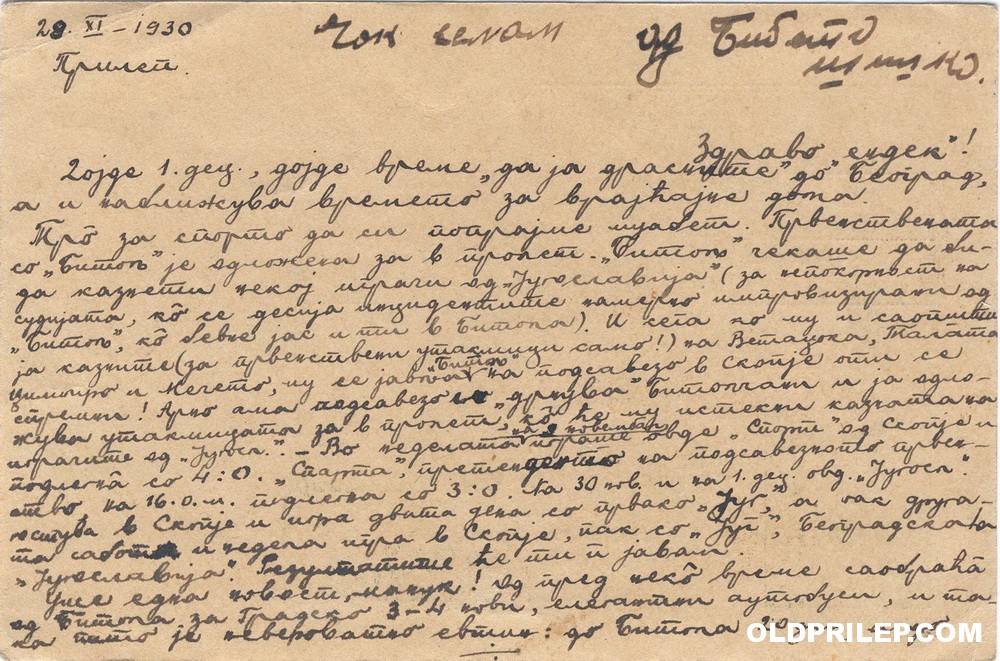 28. XI – 1930
Чок селам од Бибето
Прилеп.
Ш Ш Ко.
Здраво ендек"!
Дојде 1. дец., дојде време „да ја драсните" до Београд,
а и наближува времето за враќајне дома.
Трô за спорто да си попрајме муабет. Првенствената
со „Битољ" је одложена за в пролет. „Битољ" чекаше да би-
да казнети некој играчи од „Југославија" (за непокорност на
судијата, кô се десија инцидентите намерно импровизирани од
„Битољ", кô бевне јас и ти в Битола). И сега ко му и саопшти
ја казните (за првенствени утакмици само!) на Ветацока, Талата
и Мечето, му се јавва „Битољ" на подсавезо в Скопје оти се
стремни! Арно ама подсавезо „дркува" Битолчани и ја одло-
жува утакмицата за в пролет, кô ќе му истекни казната на
играчите од „Југосл.". – Во неделата на 9 новембар играше овде „Спорт" од Скопје и
подлегна со 4:0. „Спарта", претендент на подсавезното првен-
ство на 16.о.м. подлегна со 3:0. На 30 нов. и на 1. дец. овд. „Југосл."
гостува в Скопје и игра двата дена со првако „Југ", а пак друга-
та сабота и недела игра в Скопје, пак со „Југ", Београдската
„Југославија". Резултатите ќе ти и јавам.
Уште една новост, ! Од пред некô време саобраќа
од Битола за Градско 3–4 нови, елегантни аутобуси, и та-
ка што је невероватно евтин: до Битола и до
OLDPRILEP.COM